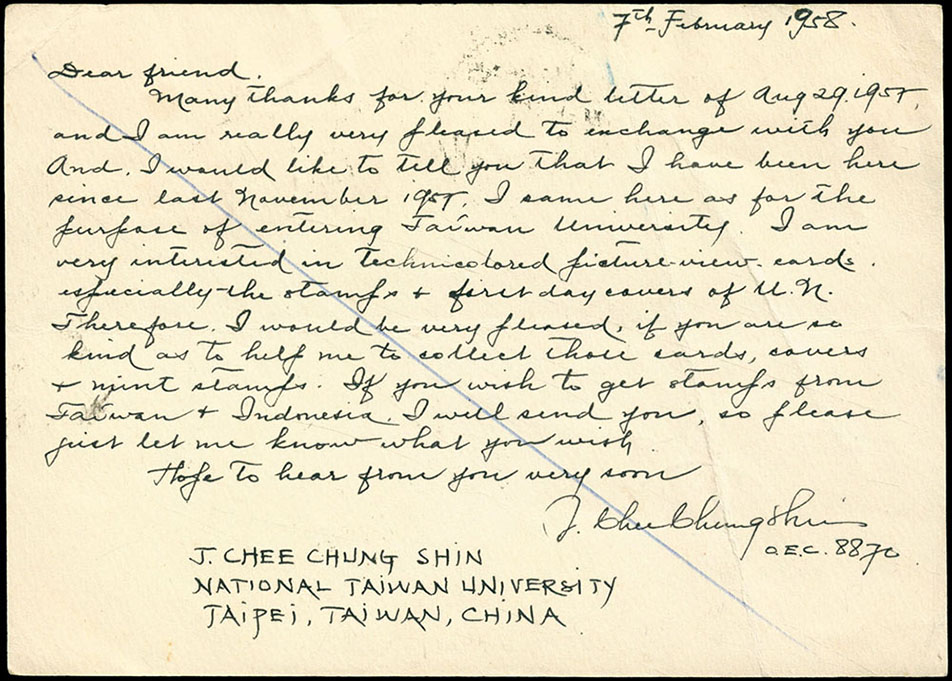 7th February 1958.
Dear friend.
Many thanks for your kind letter of Aug 29. 1957,
and I am really very pleased to exchange with you
And. I would like to tell you that I have been here
since last November 1957. I came here as for the
purpose of entering Taiwan University. I am
very interested in Technicolored picture-view cards.
especially the stamps & first day covers of U.N.
Therefore. I would be very pleased, if you are so
kind as to help me to collect those cards, covers
& mint stamps. If you wish to get stamps from
Taiwan & Indonesia. I will send you, so please
just let me know what you wish.
Hope to hear from you very soon
J. Chee Chung Shin
O.E.C. 8870
J. CHEE CHUNG SHIN
NATIONAL TAIWAN UNIVERSITY
TAIPEI, TAIWAN, CHINA